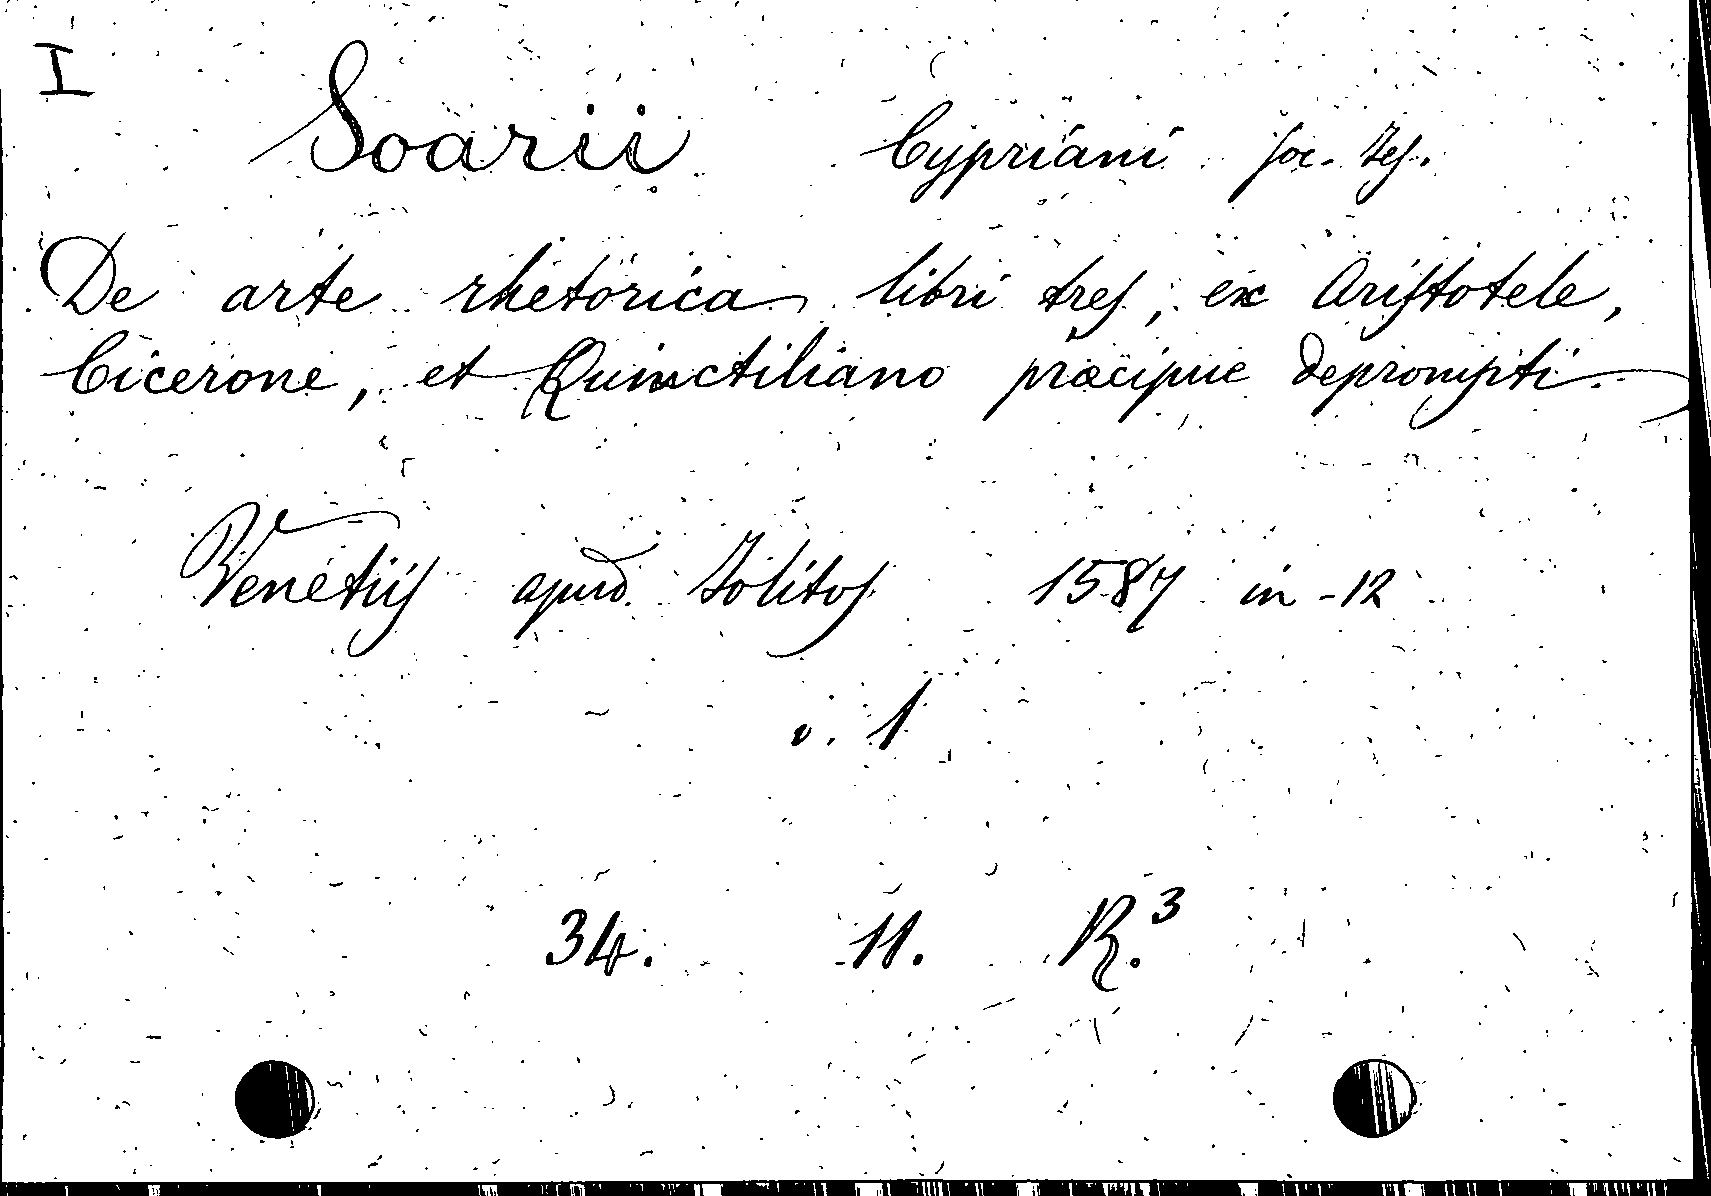 I
Soarii Cypriani Soc. Jes.
De arte rhetorica libri tres, ex Aristotele,
Cicerone, et Quinctiliano præcipue deprompti.
Venetiis apud Jolitos 1587 in-12
v. 1
34. 11. R.³